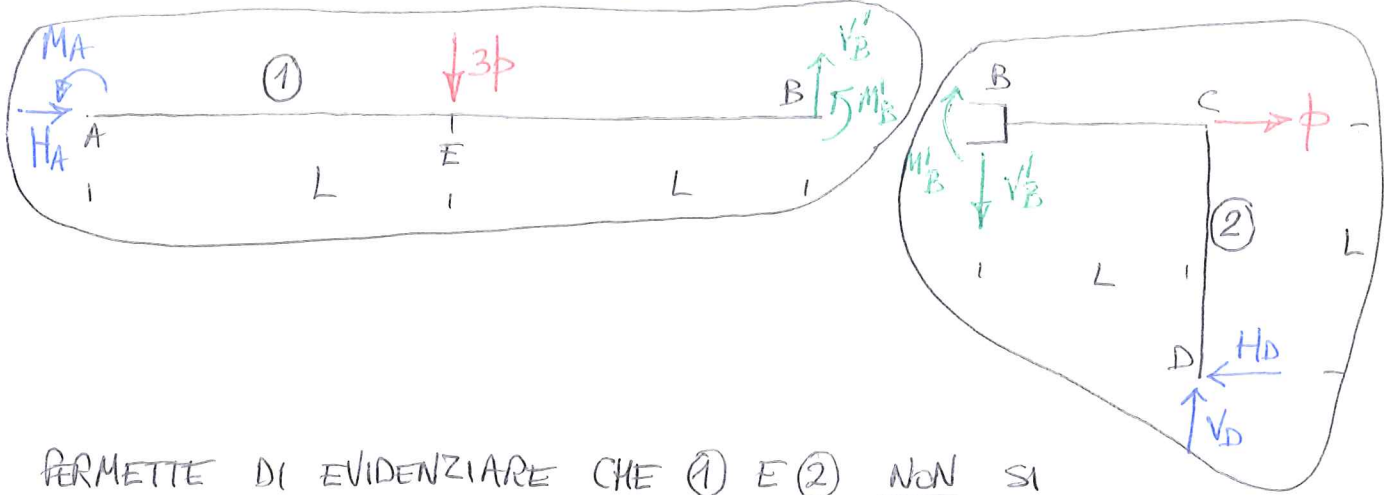 MA
HA
A
1
3p
E
B
V'B
M'B
L
L
B
C
p
M'B
V'B
2
L
L
D
HD
VD
PERMETTE DI EVIDENZIARE CHE ① E ② NON SI